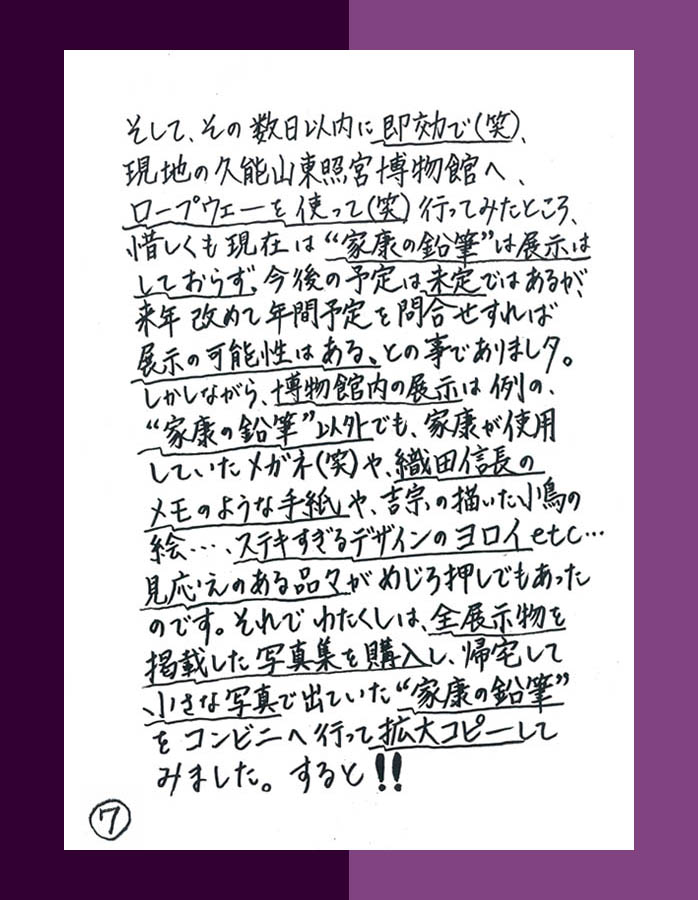 そして、その数日以内に即効で(笑)、
現地の久能山東照宮博物館へ、
ロープウェーを使って(笑)行ってみたところ、
惜しくも現在は“家康の鉛筆”は展示は
しておらず。今後の予定は未定ではあるが、
来年改めて年間予定を問合せすれば
展示の可能性はある、との事でありましタ。
しかしながら、博物館内の展示は例の、
“家康の鉛筆”以外でも、家康が使用
していたメガネ(笑)や、織田信長の
メモのような手紙や、吉宗の描いた小鳥の
絵・・・・、ステキすぎるデザインのヨロイetc…
見応えのある品々がめじろ押しでもあった
のです。それでわたくしは、全展示物を
掲載した写真集を購入し、帰宅して
小さな写真で出ていた“家康の鉛筆”
をコンビニへ行って拡大コピーして
みました。すると!!
⑦